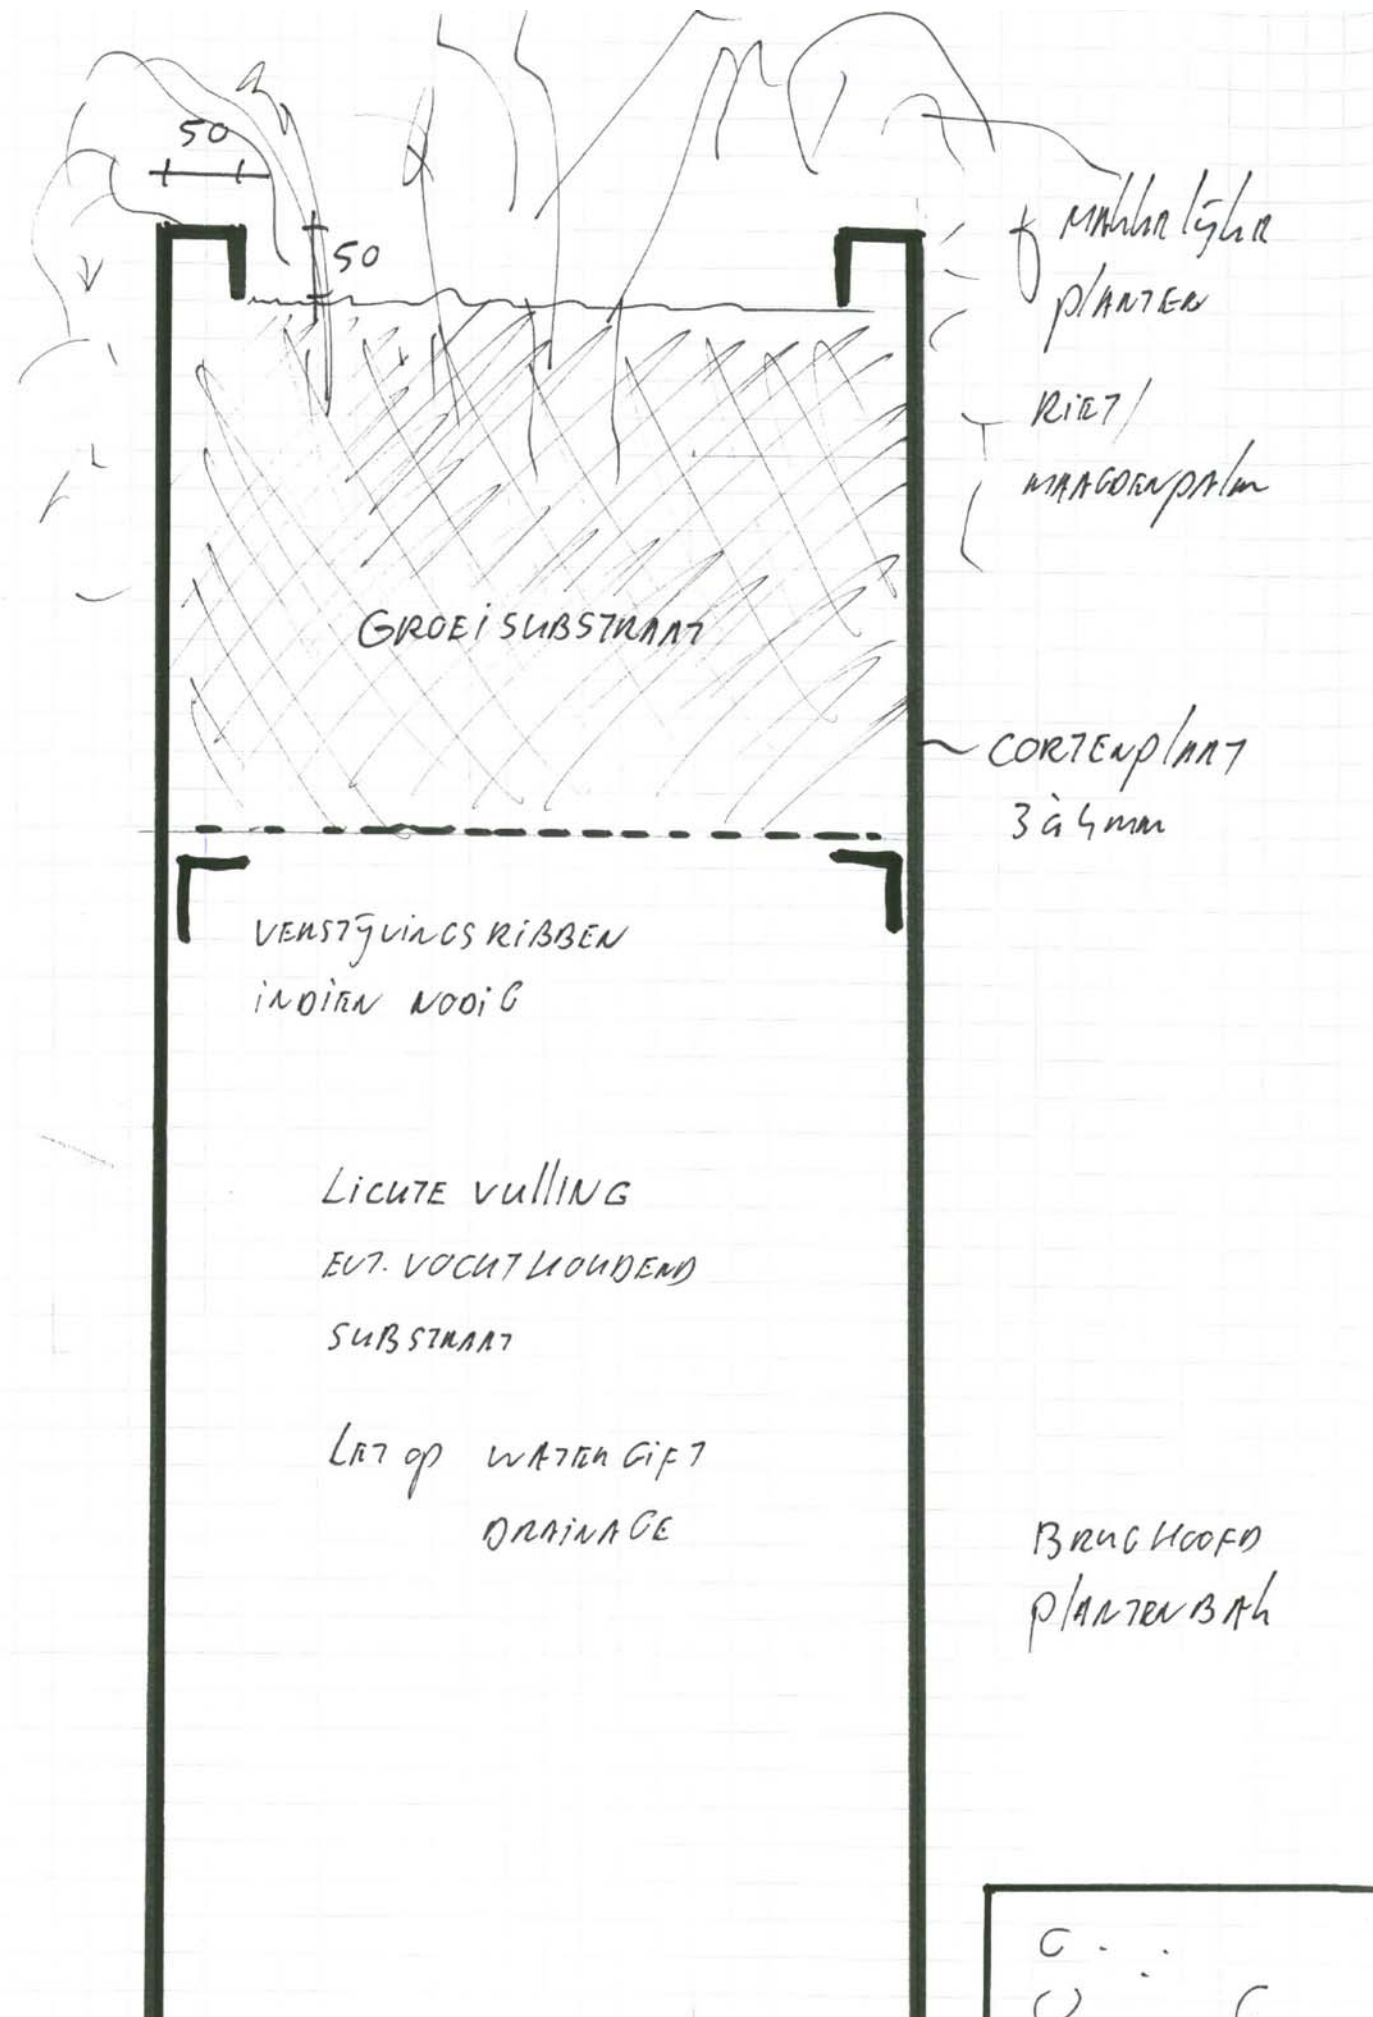 50
50
MAKKELIJKE
PLANTEN
RIET/
MAAGDENPALM
GROEISUBSTRAAT
CORTENPLAAT
3 à 4 mm
VERSTIJVINGSRIBBEN
INDIEN NODIG
LICHTE VULLING
EVT. VOCHTHOUDEND
SUBSTRAAT
LET OP WATERGIFT
DRAINAGE
BRUGHOOFD
PLANTENBAK